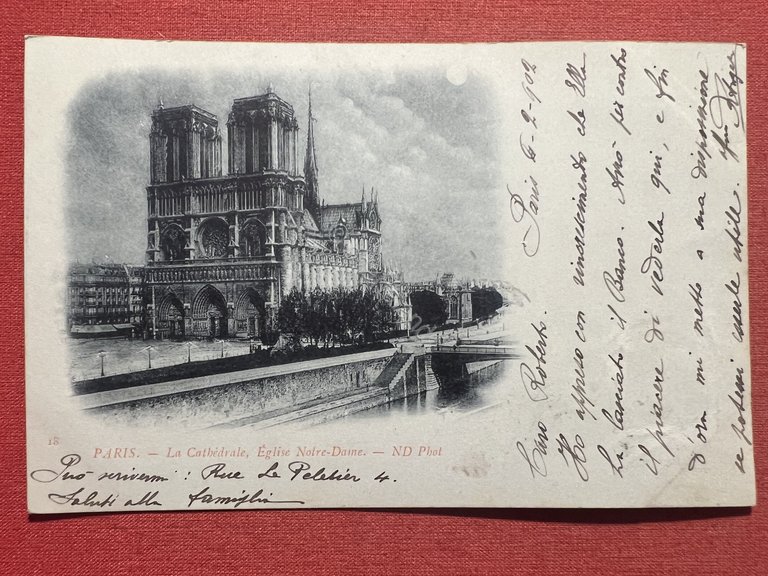 Paris 6-2-902
Caro Roberto.
Ho appreso con rincrescimento che Ella
ha lasciato il Banco. Avrò per contro
il piacere di vederla qui, e fin
d'ora mi metto a sua disposizione
se potessi esserle utile.
18
PARIS. — La Cathédrale, Église Notre-Dame. — ND Phot
Può scrivermi : Rue Le Peletier 4.
Saluti alla famiglia